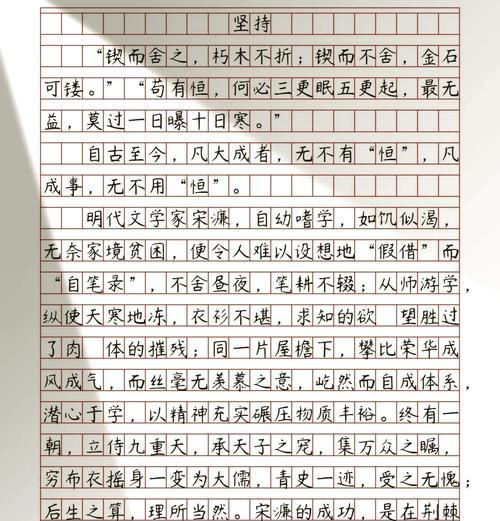 坚持
“锲而舍之，朽木不折；锲而不舍，金石
可镂。”“苟有恒，何必三更眠五更起，最无
益，莫过一日曝十日寒。”
自古至今，凡大成者，无不有“恒”，凡
成事，无不用“恒”。
明代文学家宋濂，自幼嗜学，如饥似渴，
无奈家境贫困，使令人难以设想地“假借”而
“自笔录”，不舍昼夜，笔耕不辍；从师游学，
纵使天寒地冻，衣衫不堪，求知的欲 望胜过
了肉 体的摧残；同一片屋檐下，攀比荣华成
风成气，而丝毫无羡慕之意，屹然而自成体系，
潜心于学，以精神充实碾压物质丰裕。终有一
朝，立侍九重天，承天子之宠，集万众之瞩，
穷布衣摇身一变为大儒，青史一迹，受之无愧；
后生之算，理所当然。宋濂的成功，是在荆棘